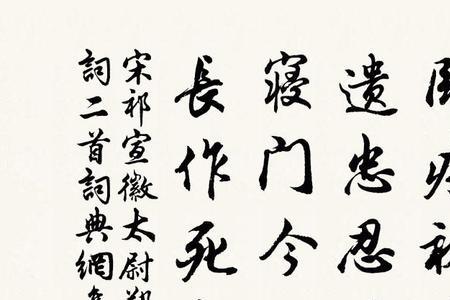 遺忠忍
寢門今
長作死
宋祁宣徽太尉
詞二首詞典網